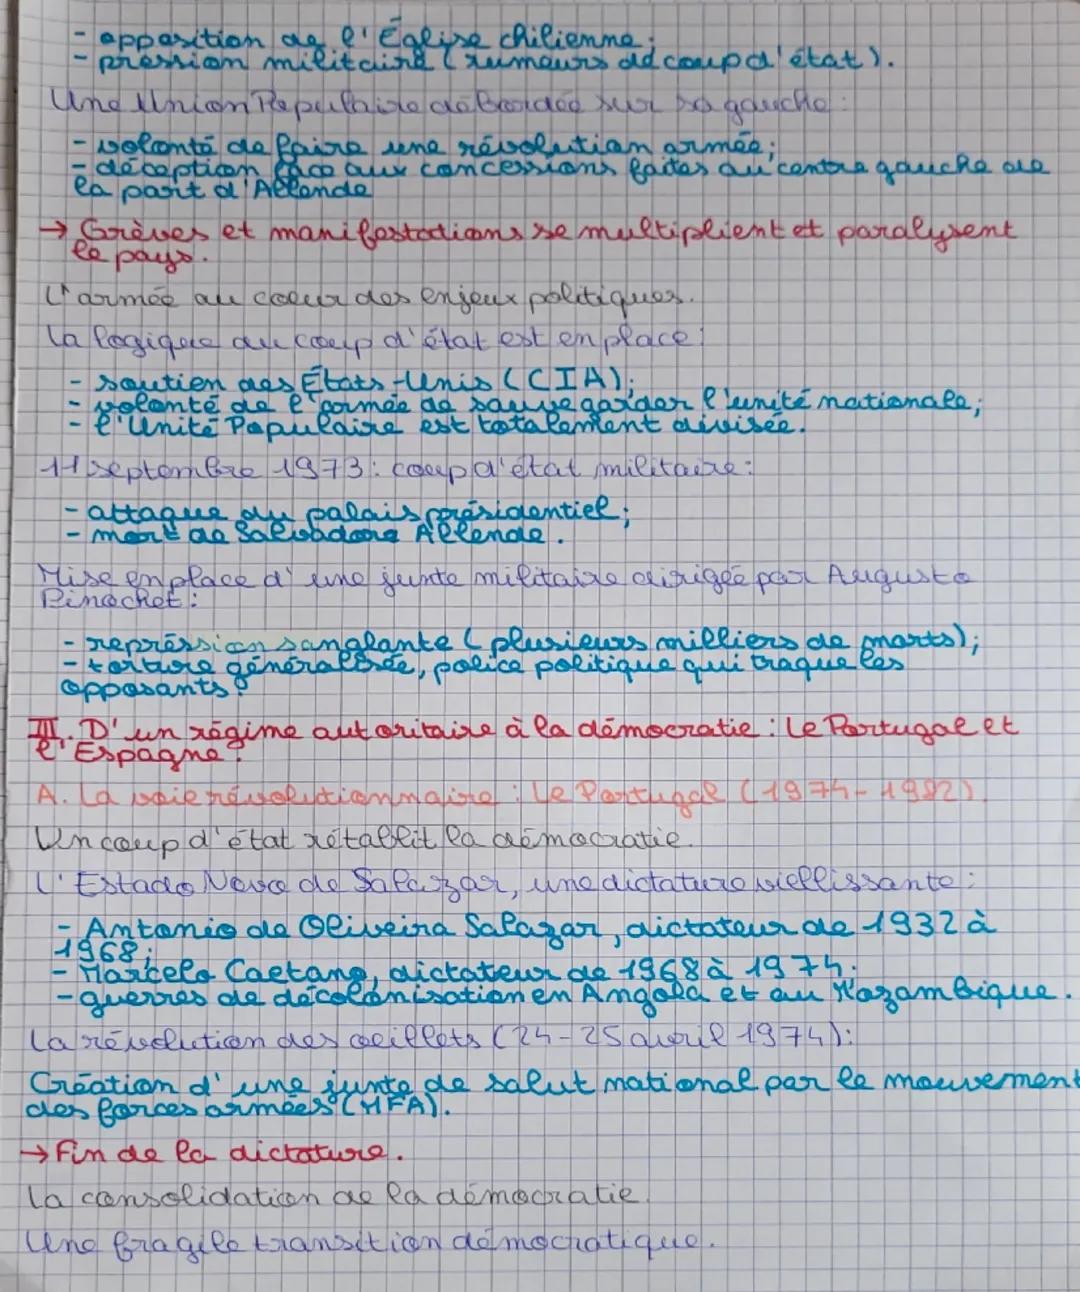 - opposition de l'Église chilienne ;
- pression militaire (rumeurs de coup d'état).
Une Union Populaire débordée sur sa gauche :
- volonté de faire une révolution armée ;
- déception face aux concessions faites au centre gauche de
la part d'Allende
→ Grèves et manifestations se multiplient et paralysent
le pays.
L'armée au coeur des enjeux politiques.
La logique du coup d'état est en place :
- soutien des États-Unis (CIA) ;
- volonté de l'armée de sauvegarder l'unité nationale ;
- l'Unité Populaire est totalement divisée.
11 septembre 1973 : coup d'état militaire :
- attaque du palais présidentiel ;
- mort de Salvadore Allende.
Mise en place d'une junte militaire dirigée par Augusto
Pinochet :
- répréssion sanglante (plusieurs milliers de morts) ;
- torture généralisée, police politique qui traque les
opposants.
III. D'un régime autoritaire à la démocratie : Le Portugal et
l'Espagne.
A. La voie révolutionnaire : Le Portugal (1974-1982).
Un coup d'état rétablit la démocratie.
L'Estado Novo de Salazar, une dictature viellissante :
- Antonio de Oliveira Salazar, dictateur de 1932 à
1968 ;
- Marcelo Caetano, dictateur de 1968 à 1974 ;
- guerres de décolonisation en Angola et au Mozambique.
La révolution des oeillets (24-25 avril 1974) :
Création d'une junte de salut national par le mouvement
des forces armées (MFA).
→ Fin de la dictature.
La consolidation de la démocratie.
Une fragile transition démocratique.